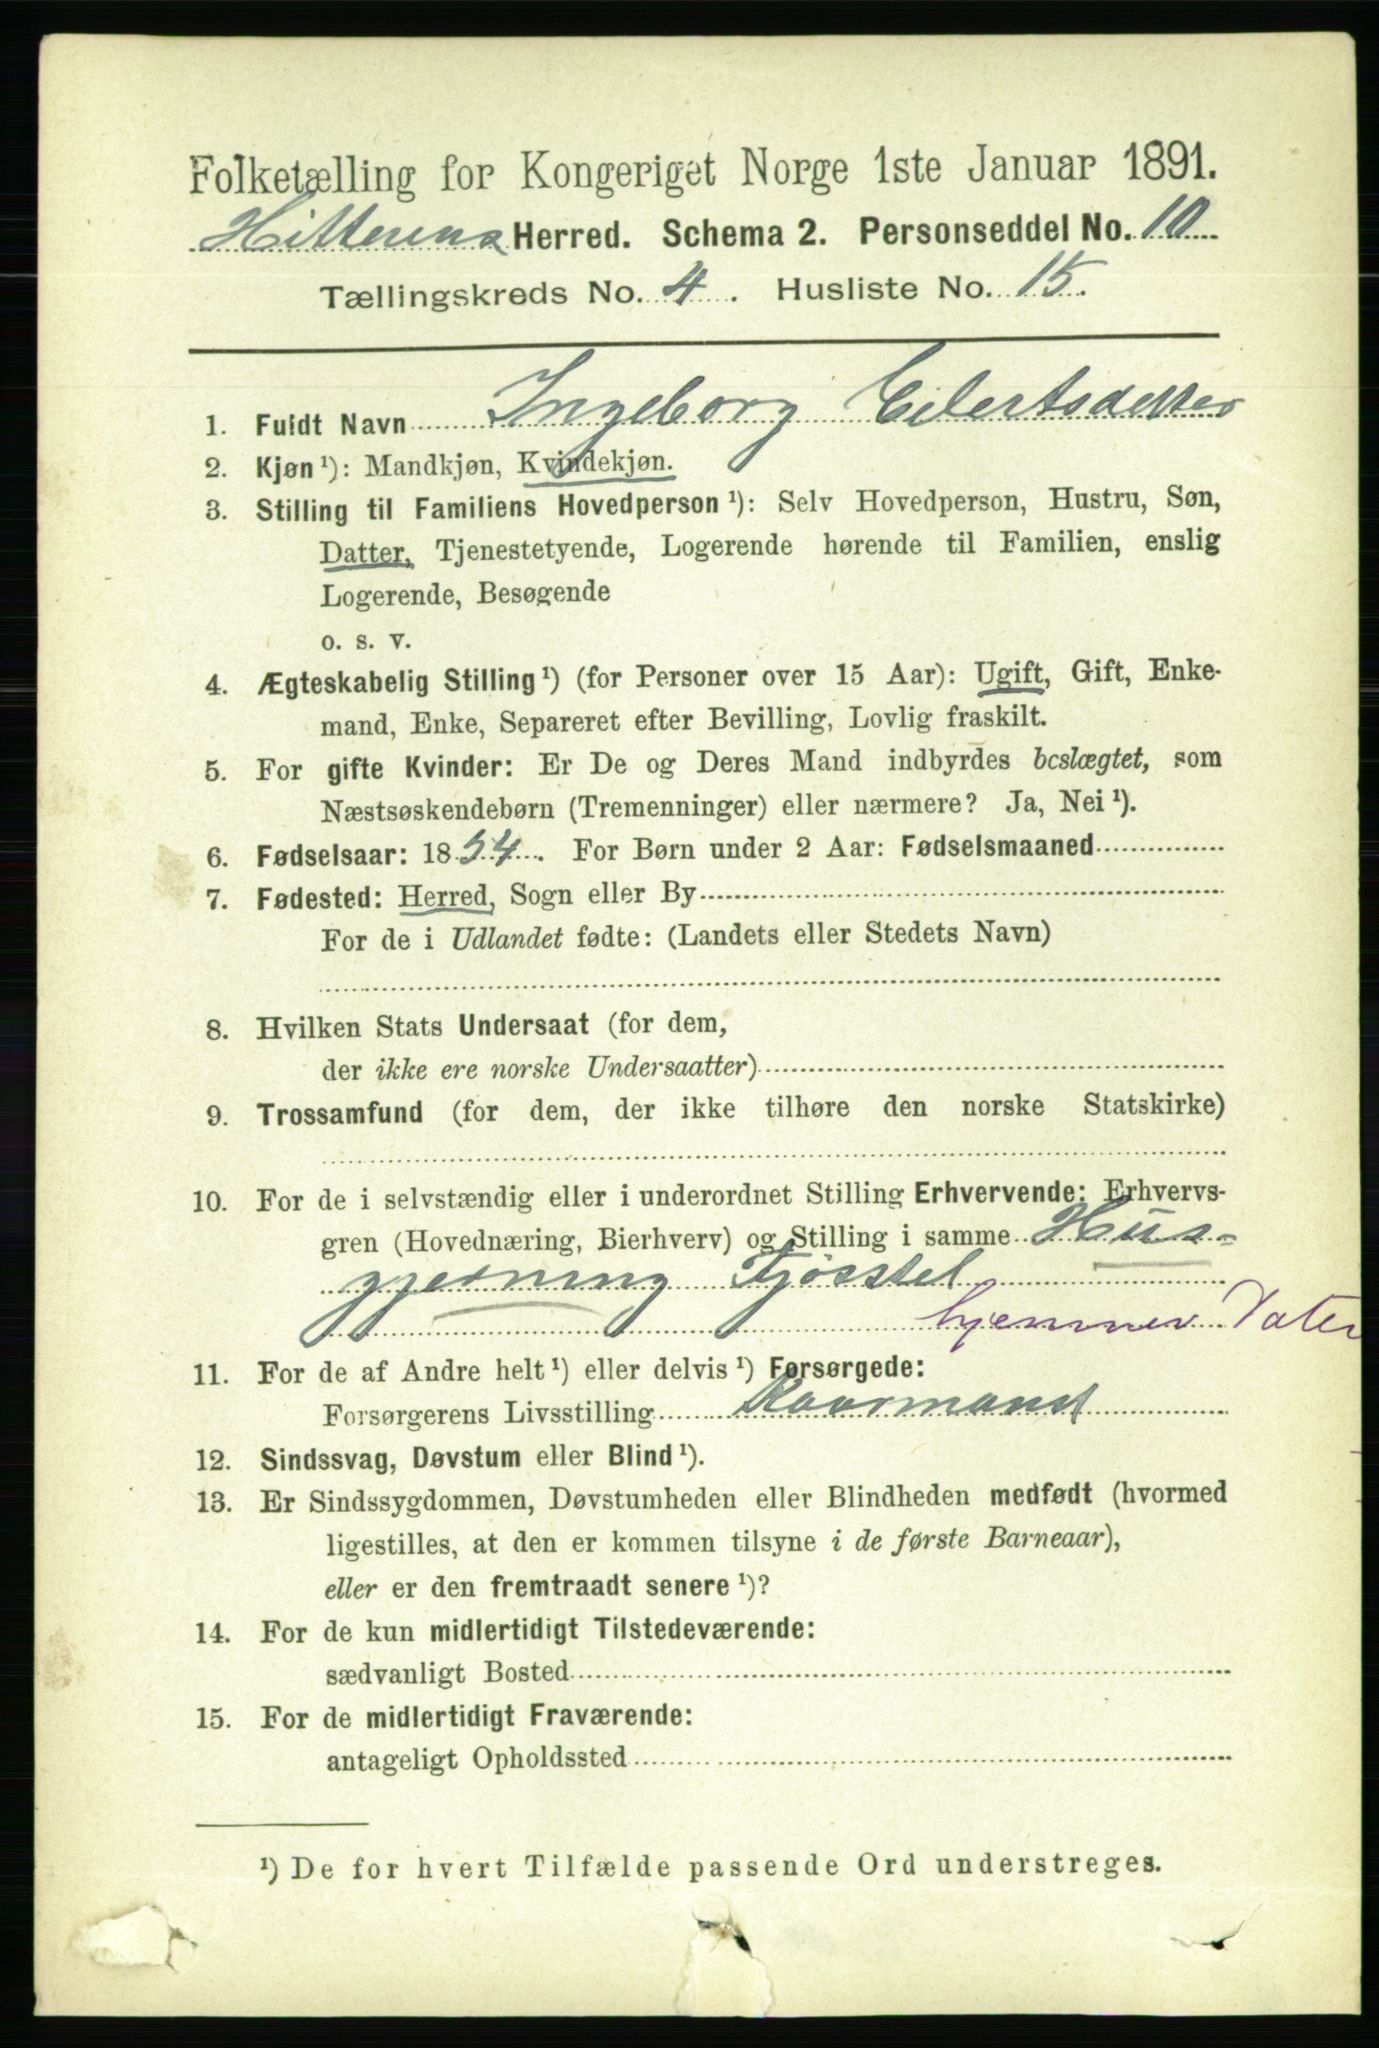 Folketælling for Kongeriget Norge 1ste Januar 1891.
Hitterens Herred. Schema 2. Personseddel No. 10
Tællingskreds No. 4. Husliste No. 15.
1. Fuldt Navn Ingeborg Eilertsdatter
2. Kjøn ¹): Mandkjøn, Kvindekjøn.
3. Stilling til Familiens Hovedperson ¹): Selv Hovedperson, Hustru, Søn,
Datter, Tjenestetyende, Logerende hørende til Familien, enslig
Logerende, Besøgende
o. s. v.
4. Ægteskabelig Stilling ¹) (for Personer over 15 Aar): Ugift, Gift, Enke-
mand, Enke, Separeret efter Bevilling, Lovlig fraskilt.
5. For gifte Kvinder: Er De og Deres Mand indbyrdes beslægtet, som
Næstsøskendebørn (Tremenninger) eller nærmere? Ja, Nei ¹).
6. Fødselsaar: 1854. For Børn under 2 Aar: Fødselsmaaned
7. Fødested: Herred, Sogn eller By
For de i Udlandet fødte: (Landets eller Stedets Navn)
8. Hvilken Stats Undersaat (for dem,
der ikke ere norske Undersaatter)
9. Trossamfund (for dem, der ikke tilhøre den norske Statskirke)
10. For de i selvstændig eller i underordnet Stilling Erhvervende: Erhvervs-
gren (Hovednæring, Bierhverv) og Stilling i samme Hus-
gjerning Fjøsstel
hjemmev. Dater
11. For de af Andre helt ¹) eller delvis ¹) Forsørgede:
Forsørgerens Livsstilling Kaarmand
12. Sindssvag, Døvstum eller Blind ¹).
13. Er Sindssygdommen, Døvstumheden eller Blindheden medfødt (hvormed
ligestilles, at den er kommen tilsyne i de første Barneaar),
eller er den fremtraadt senere ¹)?
14. For de kun midlertidigt Tilstedeværende:
sædvanligt Bosted
15. For de midlertidigt Fraværende:
antageligt Opholdssted
¹) De for hvert Tilfælde passende Ord understreges.